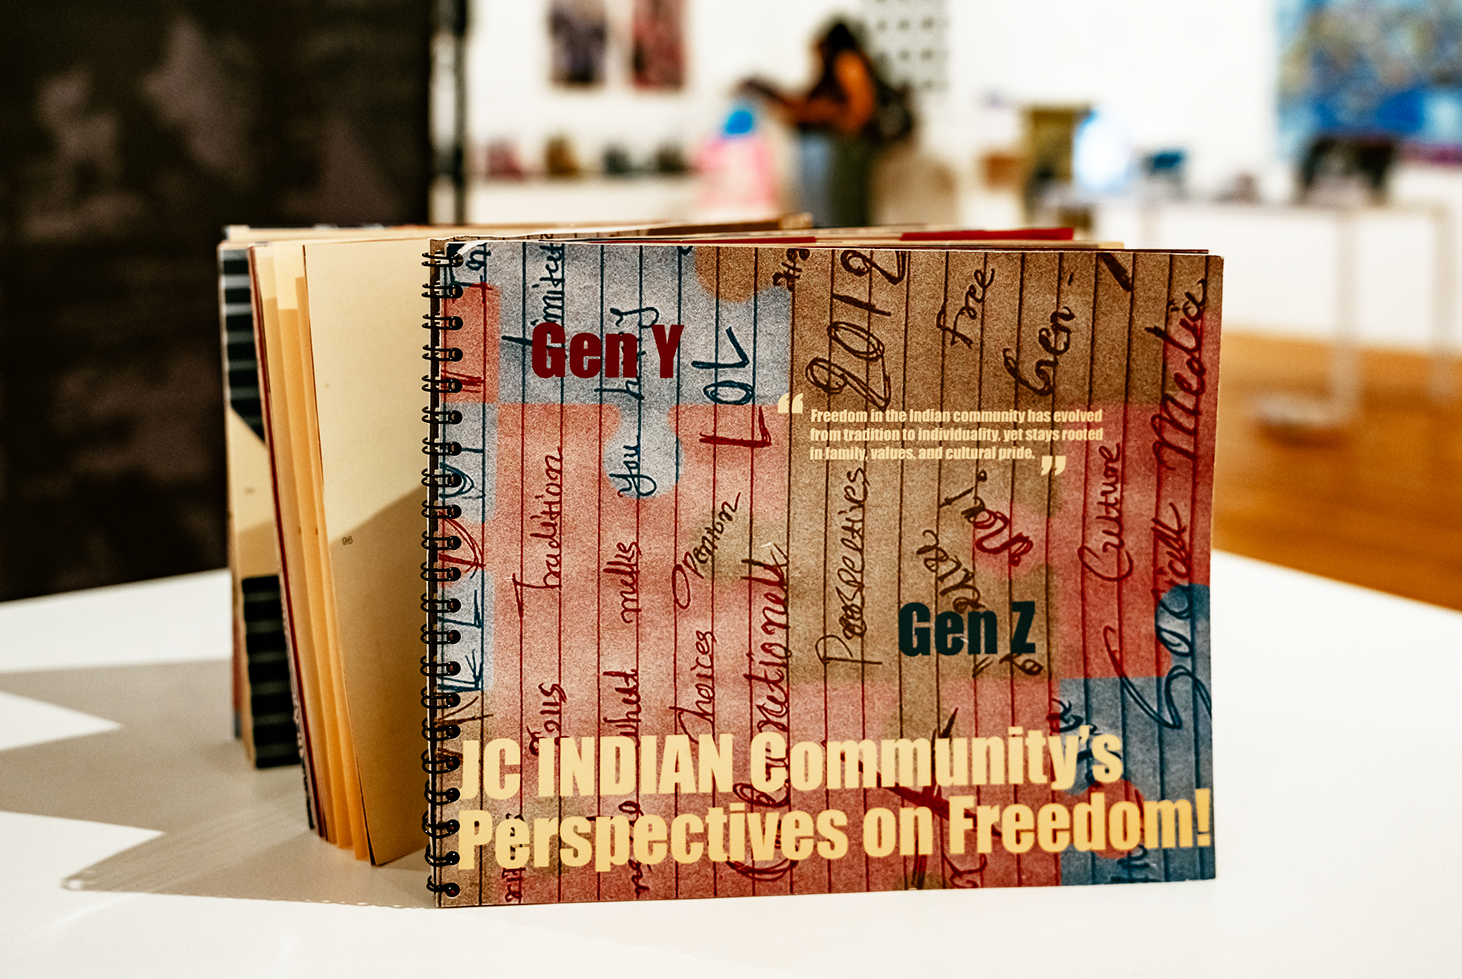 Gen Y
“
Freedom in the Indian community has evolved
from tradition to individuality, yet stays rooted
in family, values, and cultural pride.
”
Gen Z
JC INDIAN Community's
Perspectives on Freedom!
96
tradition
You
LOL
Opinion
choices
2012
Perspectives
Free
Gen-
Culture
Social Media